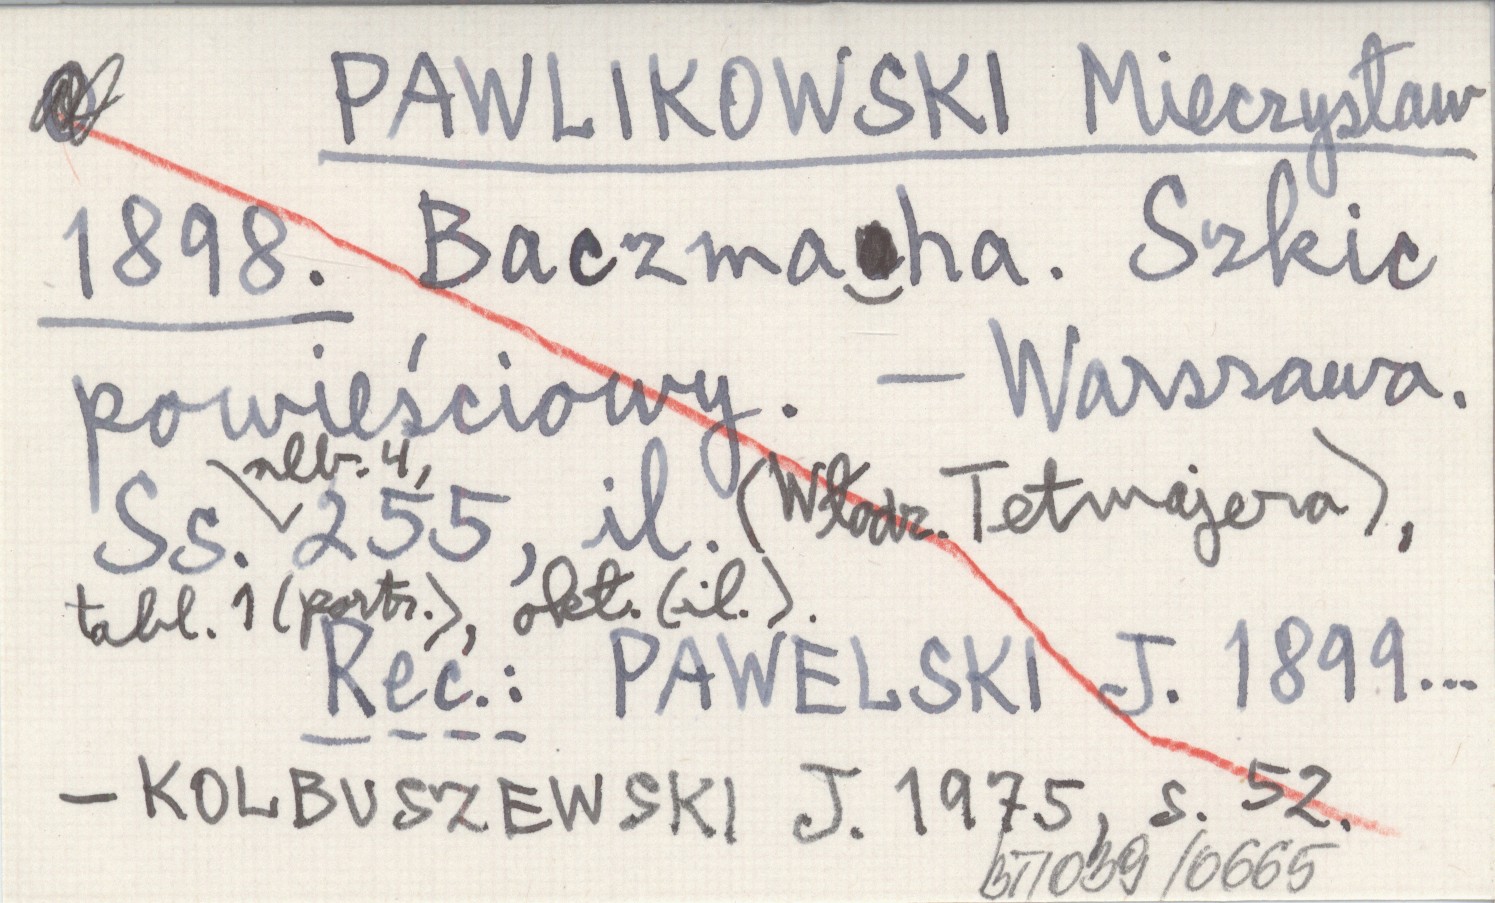 PAWLIKOWSKI Mieczysław
1898. Baczmaha. Szkic
powieściowy. — Warszawa.
nlb. 4,
Ss. 255, il. (Włodz. Tetmajera),
tabl. 1 (portr.), okł. (il.).
Rec.: PAWELSKI J. 1899...
— KOLBUSZEWSKI J. 1975, s. 52.
/0665